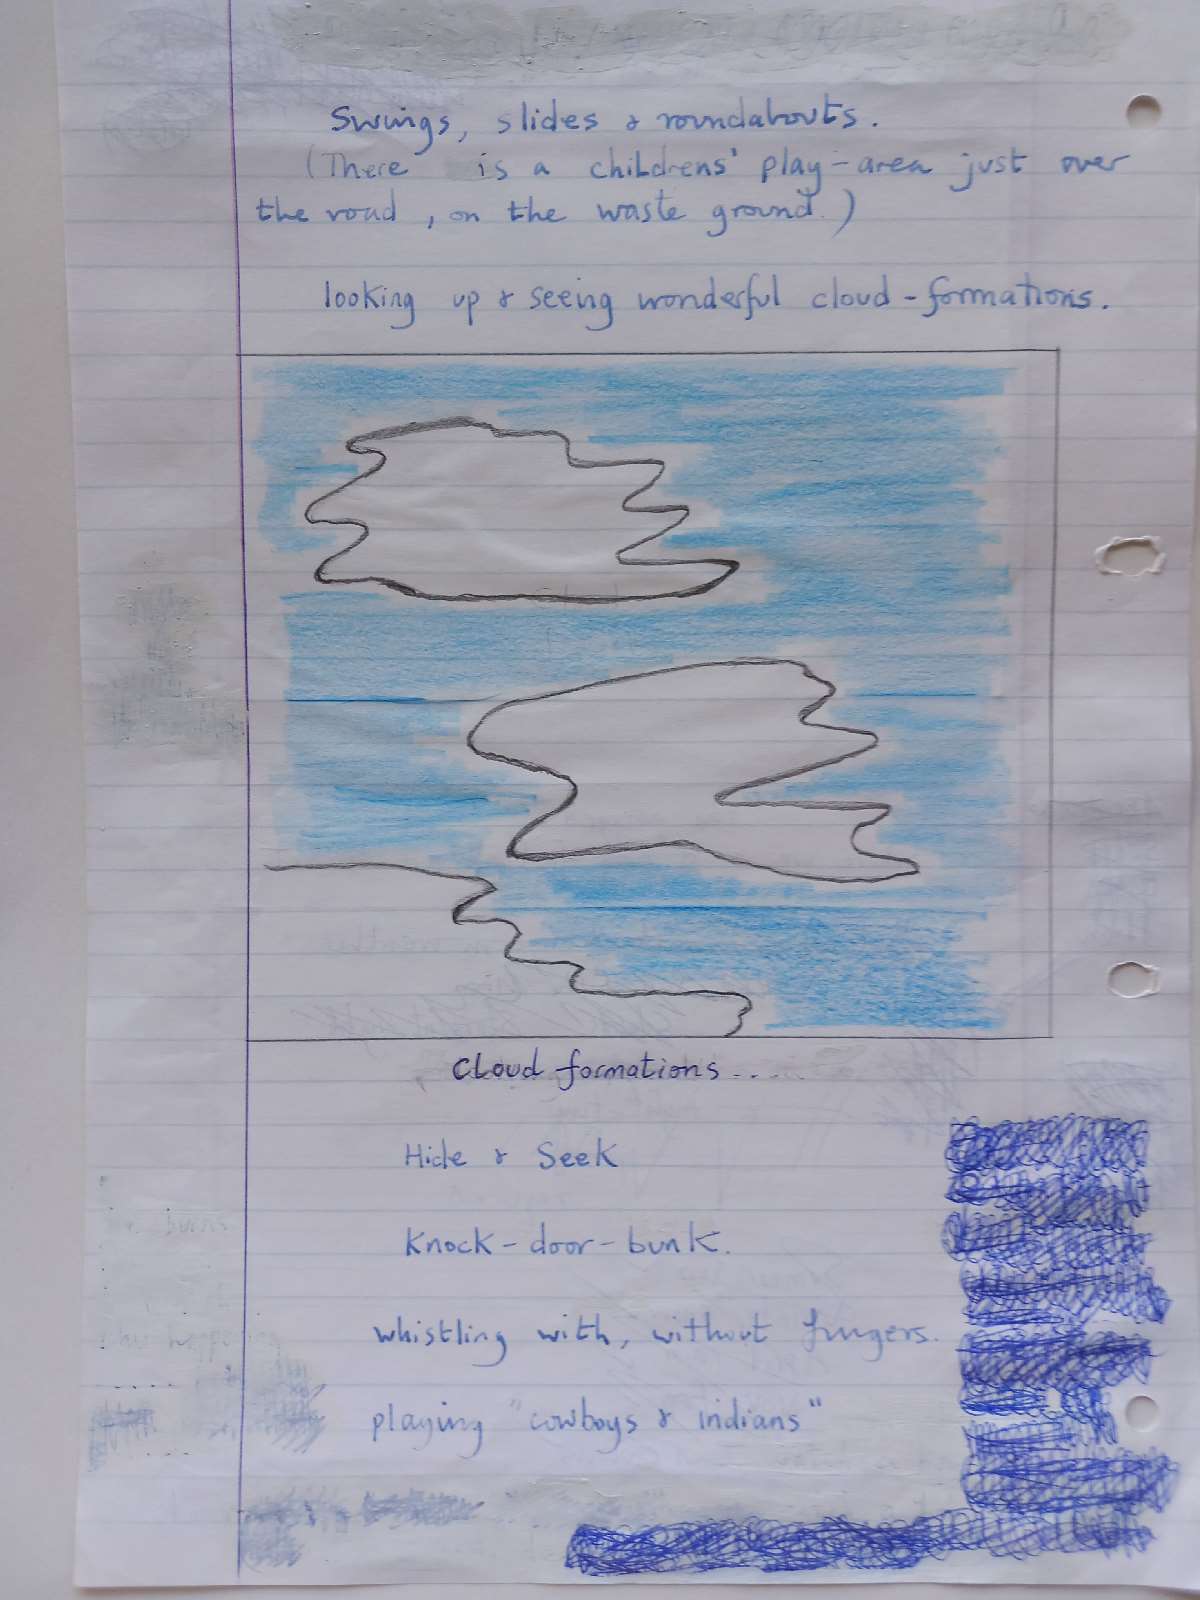 Swings, slides & roundabouts.
(There is a childrens' play-area just over
the road, on the waste ground.)
looking up & seeing wonderful cloud-formations.
Cloud formations....
Hide & Seek
Knock-door-bunk.
whistling with, without fingers.
playing "cowboys & indians"